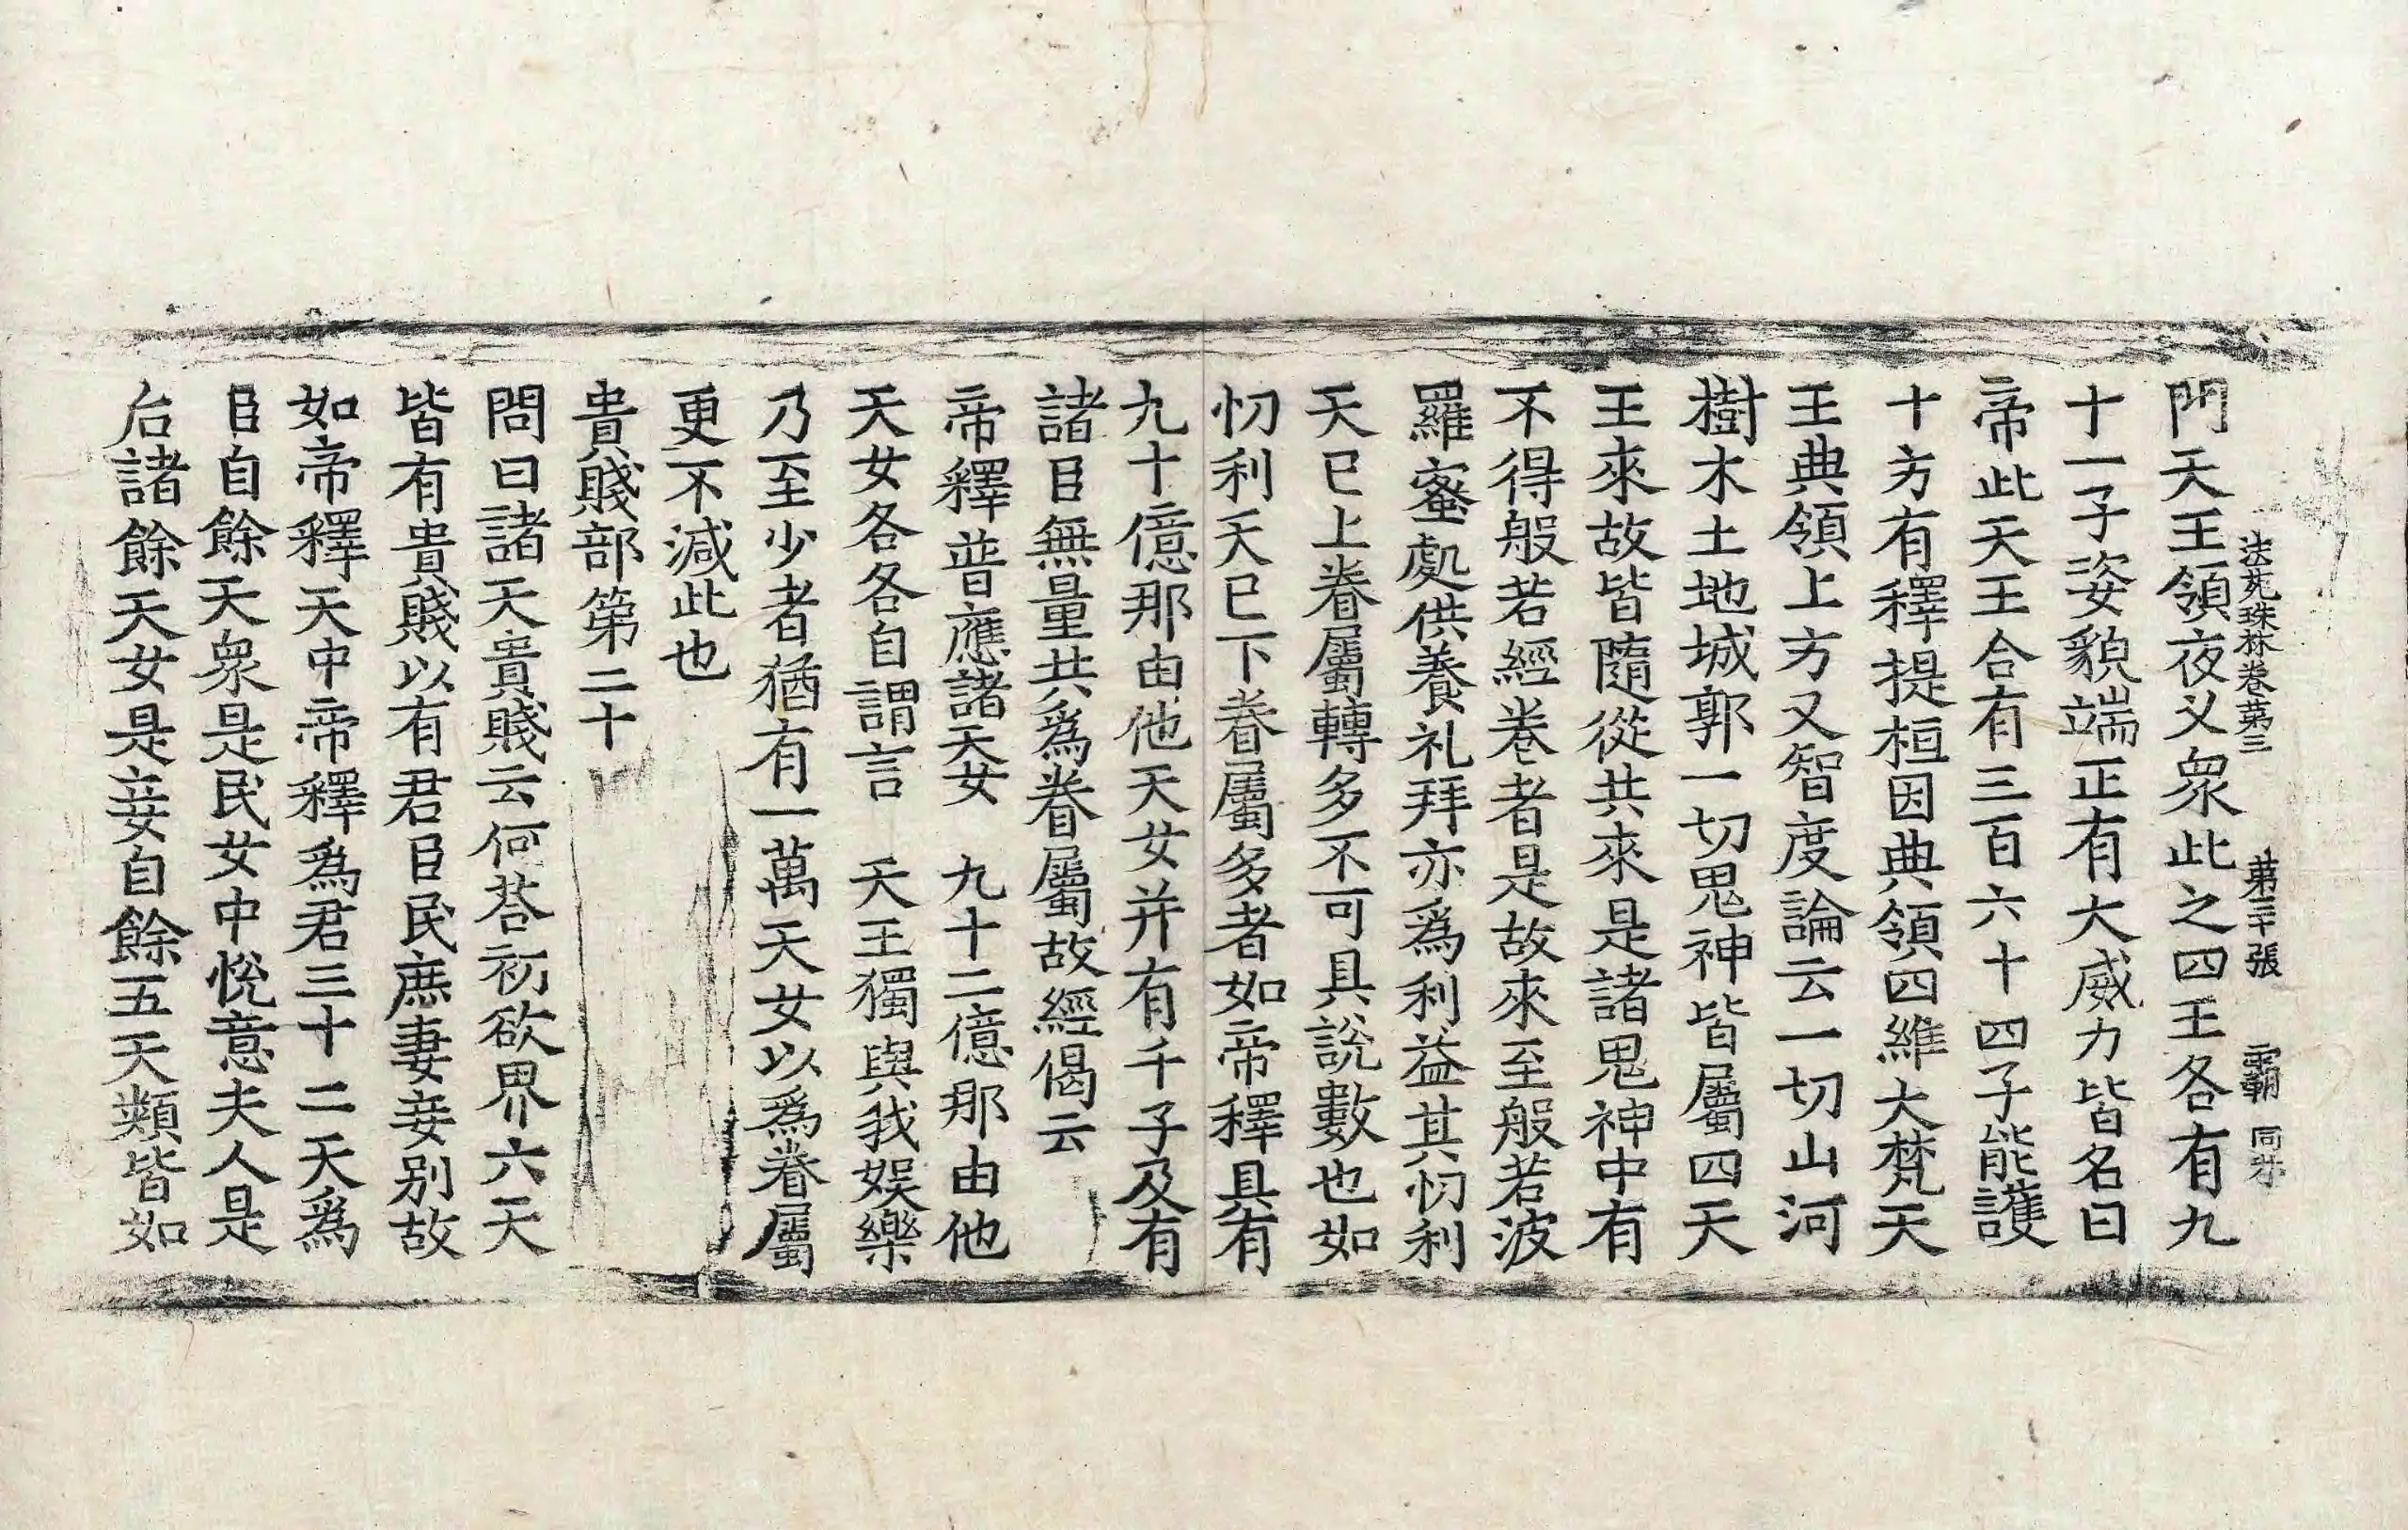 法苑珠林卷第三　第二十張　霸　同禾
門天王領夜叉衆此之四王各有九
十一子姿貌端正有大威力皆名曰
帝此天王合有三百六十四子能護
十方有釋提桓因典領四維大梵天
王典領上方又智度論云一切山河
樹木土地城郭一切鬼神皆屬四天
王來故皆隨從共來是諸鬼神中有
不得般若經卷者是故來至般若波
羅蜜處供養礼拜亦爲利益其忉利
天已上眷屬轉多不可具說數也如
忉利天已下眷屬多者如帝釋具有
九十億那由他天女并有千子及有
諸臣無量共爲眷屬故經偈云
帝釋普應諸天女　九十二億那由他
天女各各自謂言　天王獨與我娛樂
乃至少者猶有一萬天女以爲眷屬
更不減此也
貴賤部第二十
問曰諸天貴賤云何荅初欲界六天
皆有貴賤以有君臣民庶妻妾别故
如帝釋天中帝釋爲君三十二天爲
臣自餘天衆是民女中悅意夫人是
后諸餘天女是妾自餘五天類皆如